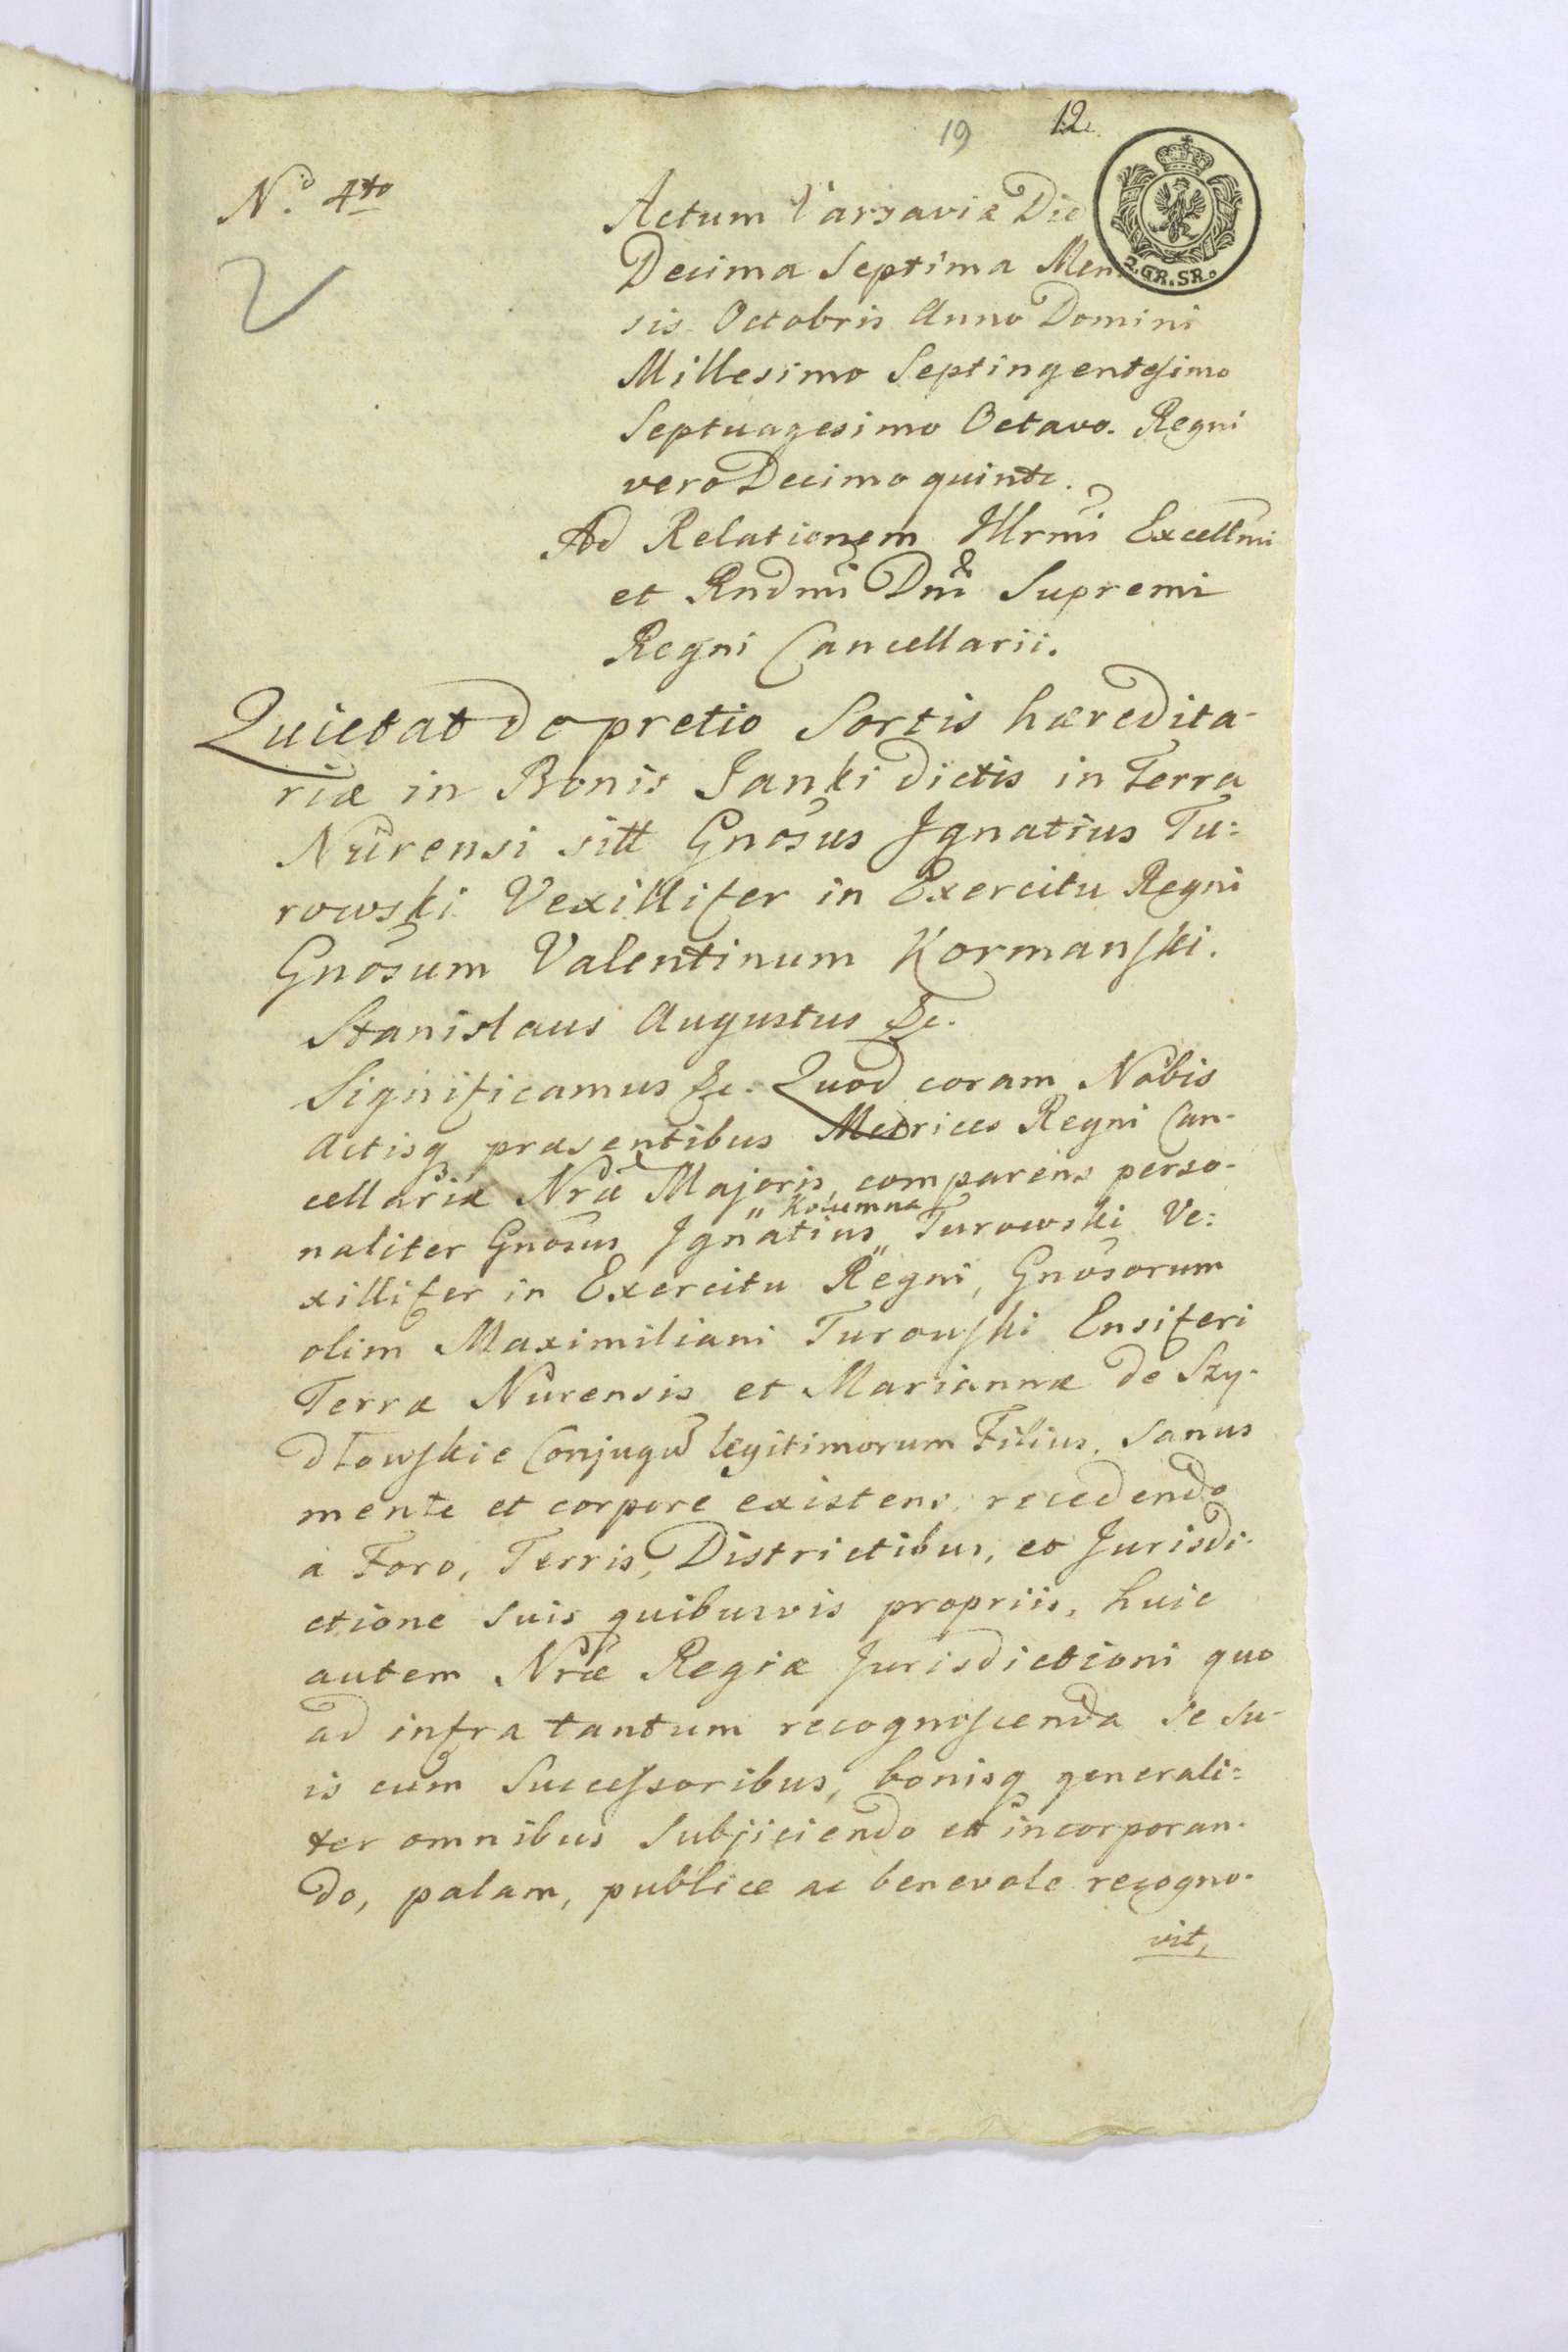 19 12.
N.o 4to
2.GR.SR.
Actum Varsaviæ Die
Decima Septima Men
sis Octobris Anno Domini
Millesimo Septingentesimo
Septuagesimo Octavo. Regni
vero Decimo quinto.
Ad Relationem Illrmi Excellmi
et Rndmi Dni Supremi
Regni Cancellarii.
Quietat de pretio Sortis hæredita-
riæ in Bonis Janki dictis in Terra
Nurensi sitt Gnosus Ignatius Tu:
rowski Vexillifer in Exercitu Regni
Gnosum Valentinum Kormanski.
Stanislaus Augustus &c.
Significamus &c. Quod coram Nobis
Actisq præsentibus Metrices Regni Can-
cellariæ Nræ Majoris comparens perso-
" Kolumna
naliter Gnosus Ignatius " Turowski Ve:
xillifer in Exercitu Regni, Gnosorum
olim Maximiliani Turowski Ensiferi
Terræ Nurensis et Mariannæ de Szy-
dłowskie Conjugu legitimorum Filius, sanus
mente et corpore existens, recedendo
à Foro, Terris, Districtibus, et Jurisdi-
ctione suis quibusvis propriis, huic
autem Nræ Regiæ Jurisdictioni quo
ad infra tantum recognoscenda se su-
is cum Successoribus, bonisq generali=
ter omnibus subjiciendo et incorporan-
do, palam, publice ac benevole recogno-
vit,